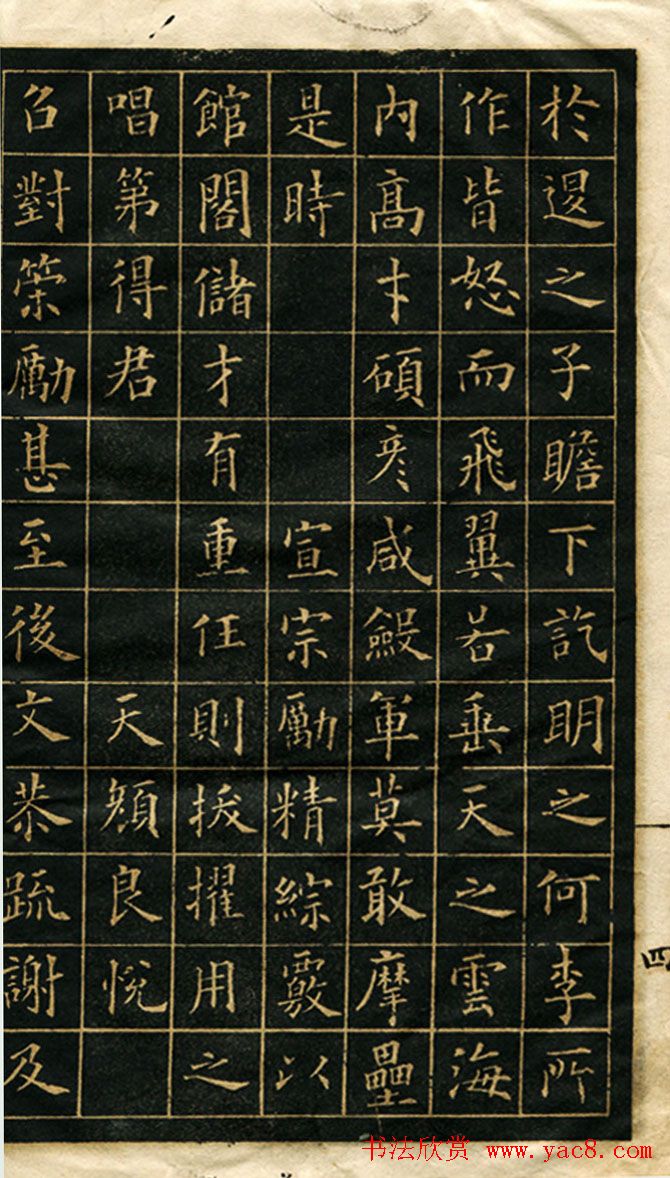 於退之子瞻下訖明之何李所
作皆怒而飛翼若垂天之雲海
內高才碩彥咸毀軍莫敢摩壘
是時宣宗勵精綜覈以
館閣儲才有重任則拔擢用之
唱第得君天顏良悅
召對榮勵甚至後文恭疏謝及
四
书法欣赏 www.yac8.com